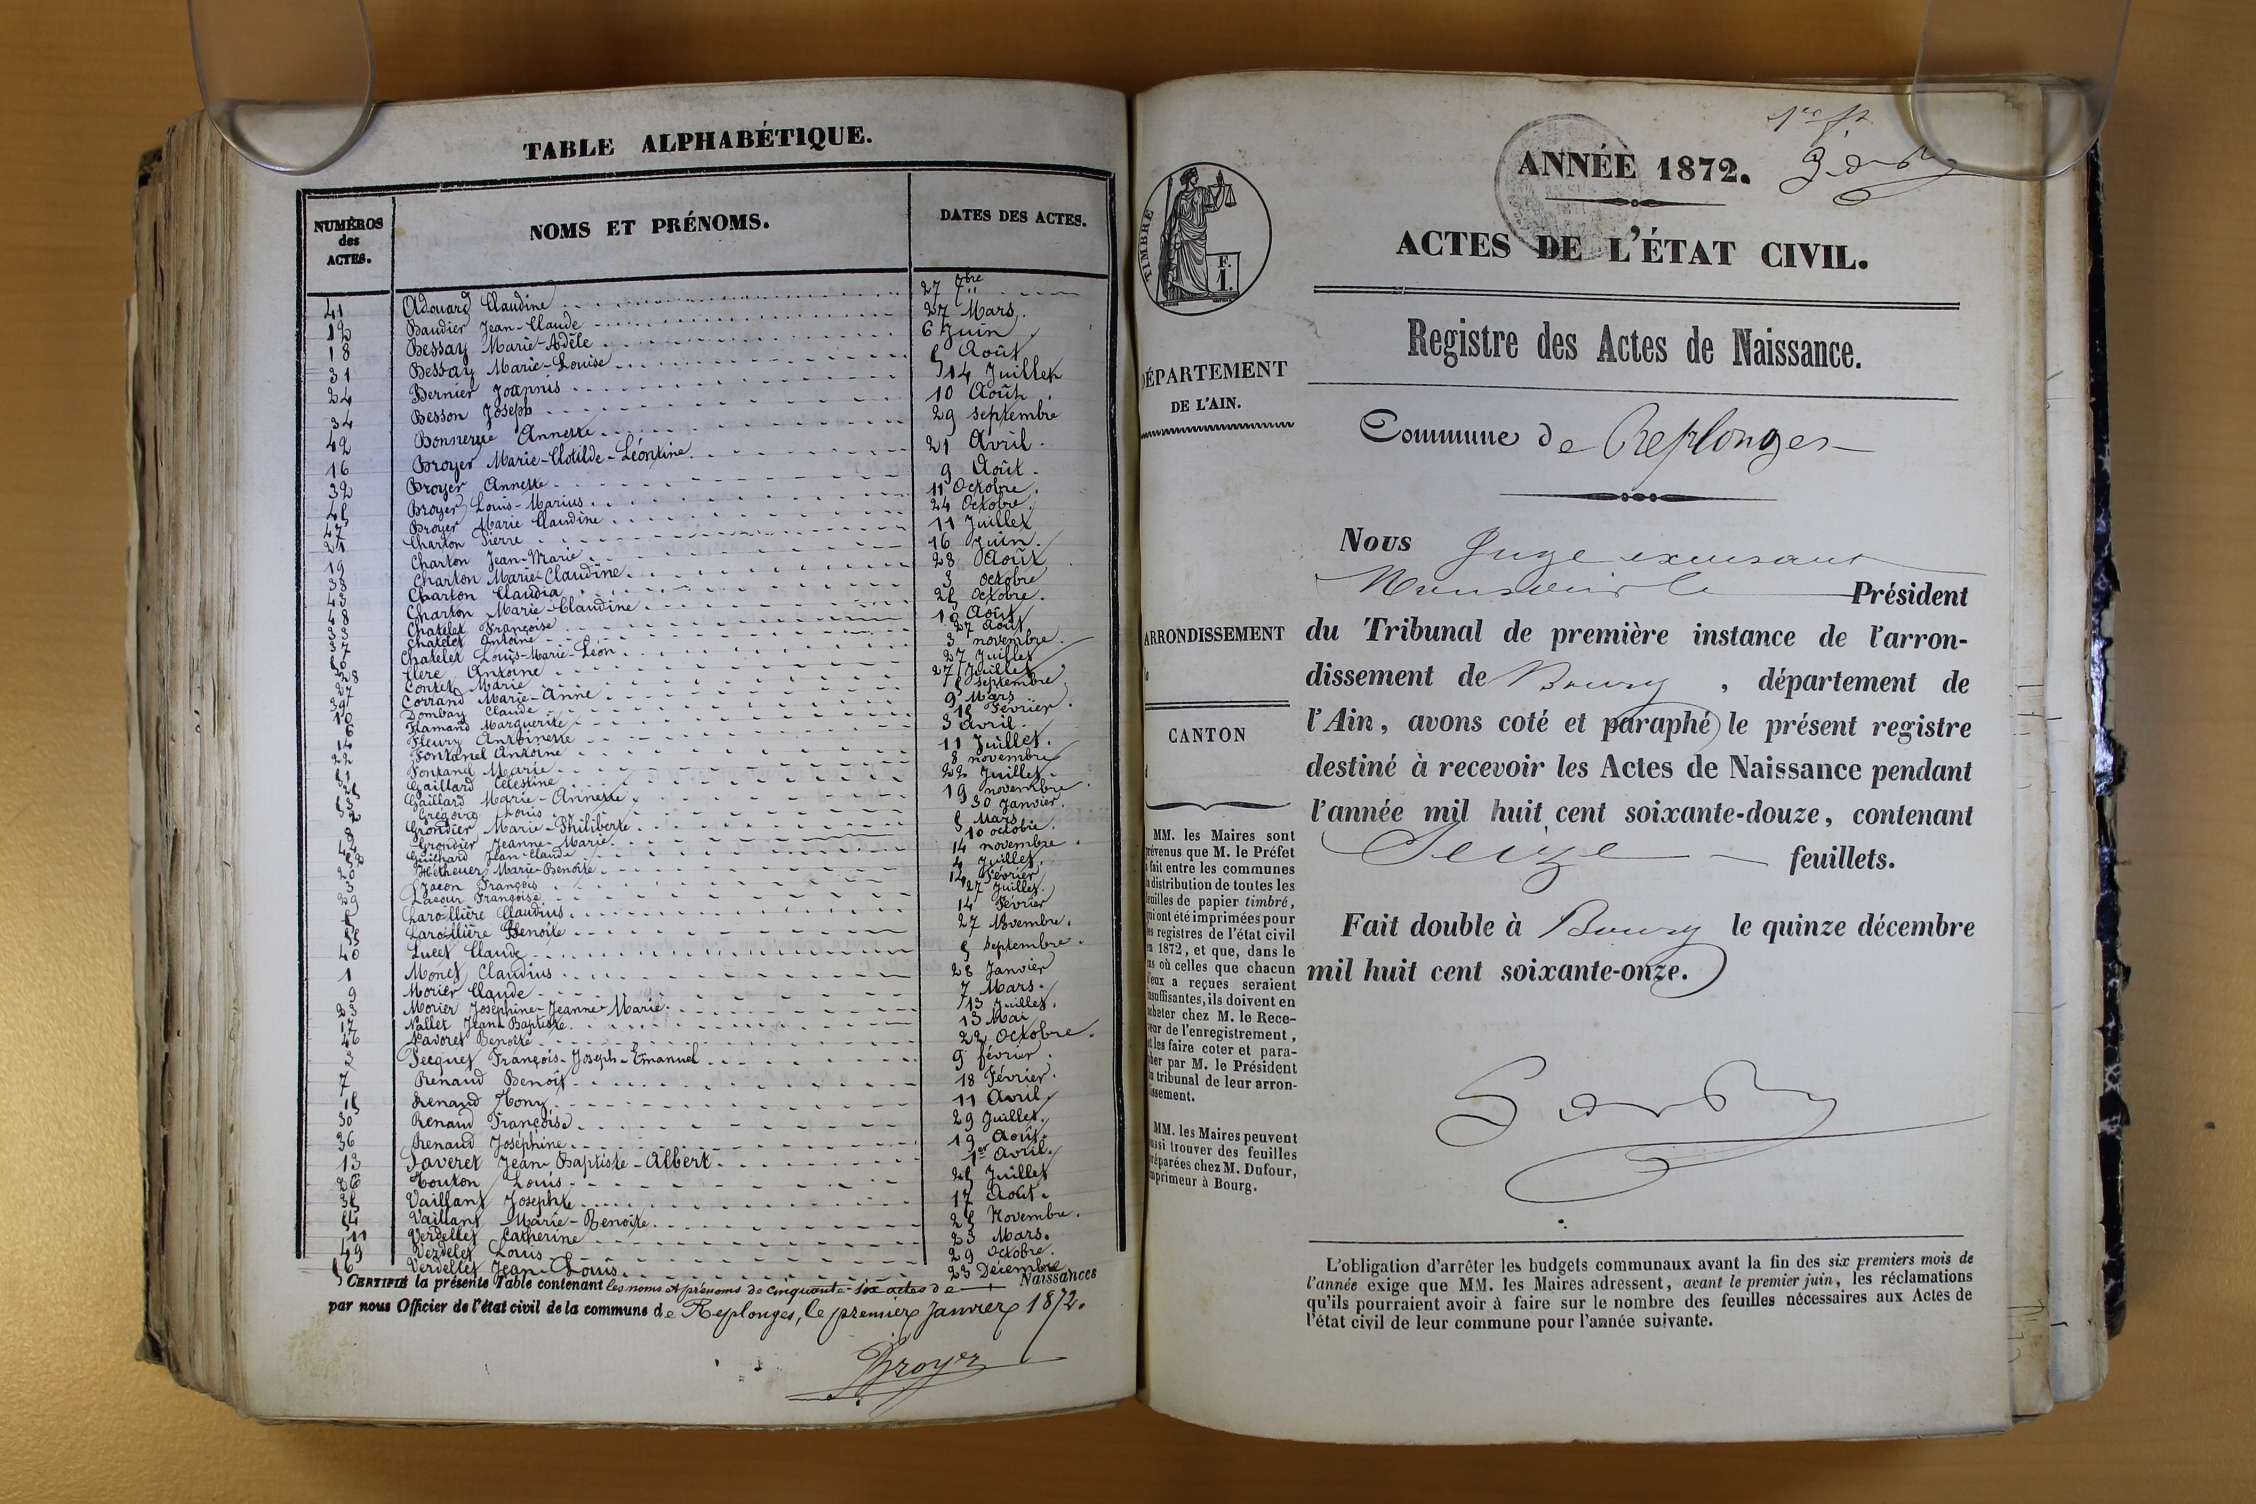 TABLE ALPHABÉTIQUE.
NUMÉROS des ACTES.
NOMS ET PRÉNOMS.
DATES DES ACTES.
41 Adouard Claudine 27 7bre
12 Baudier Jean-Claude 27 Mars.
18 Bessay Marie-Adèle 6 Juin
31 Bessay Marie-Louise 5 Août
24 Bernier Joannis 14 Juillet
34 Besson Joseph 10 Août
42 Bonnerue Annette 29 septembre
16 Broyer Marie-Clotilde-Léontine 21 Avril.
32 Broyer Annette 9 Août.
45 Broyer Louis-Marius 11 Octobre.
47 Broyer Marie Claudine 24 Octobre.
21 Charton Pierre 11 Juillet
19 Charton Jean-Marie 16 Juin.
38 Charton Marie-Claudine 28 Août
43 Charton Claudia 3 octobre
48 Charton Marie-Claudine 25 Octobre.
33 Chatelet Françoise 19 Août
37 Chatelet Antoine 27 Août
50 Chatelet Louis-Marie-Léon 3 novembre.
28 Clere Antoine 27 Juillet
27 Contet Marie 27 Juillet
39 Corrand Marie-Anne 5 septembre
10 Dombay Claude 9 Mars
6 Flamand Marguerite 15 Février.
14 Fleury Antoinette 3 Avril.
22 Fontanel Antoine 11 Juillet.
51 Fontanel Marie 8 novembre
25 Gaillard Célestine 22 Juillet.
53 Gaillard Marie-Annette 19 novembre
2 Grégoire Louis 30 Janvier.
8 Grondier Marie-Philiberte 5 Mars
44 Grondier Jeanne-Marie 10 octobre.
52 Guichard Jean-Claude 14 novembre.
20 Marie-Benoîte 4 Juillet.
3 Jacon François 14 Février
29 Lacour Françoise 27 Juillet.
5 Larollière Claudius 14 Février
55 Larollière Benoîte 27 Novembre.
40 Lucet Claude 5 Septembre.
1 Monet Claudius 28 Janvier
9 Morier Claude 7 Mars.
23 Morier Joséphine-Jeanne-Marie 13 Juillet.
17 Nallet Jean-Baptiste 13 Mai
46 Navoret Benoîte 22 Octobre.
3 Pecquet François-Joseph-Emanuel 9 février.
7 Renaud Benoît 18 Février.
15 Renaud Tony 11 Avril
30 Renaud Françoise 29 Juillet.
36 Renaud Joséphine 19 Août.
13 Saveret Jean-Baptiste-Albert 1er Avril.
26 Touton Louis 25 Juillet
35 Vaillant Josephte 17 Août.
54 Vaillant Marie-Benoîte 25 Novembre.
11 Verdellet Catherine 23 Mars.
49 Verdelet Louis 29 Octobre.
56 Verdellet Jean-Louis 23 Décembre
CERTIFIÉ la présente Table contenant les noms et prénoms de cinquante-six actes de Naissances
par nous Officier de l'état civil de la commune de Replonges, le premier Janvier 1872.
Broyer
1er ft
ANNÉE 1872.
ACTES DE L'ÉTAT CIVIL.
TIMBRE
F. 1.
Registre des Actes de Naissance.
DÉPARTEMENT
DE L'AIN.
Commune de Replonges
Nous Juge excusant
Monsieur le Président
du Tribunal de première instance de l'arron-
dissement de Bourg, département de
l'Ain, avons coté et paraphé le présent registre
destiné à recevoir les Actes de Naissance pendant
l'année mil huit cent soixante-douze, contenant
Seize feuillets.
Fait double à Bourg le quinze décembre
mil huit cent soixante-onze.
ARRONDISSEMENT
CANTON
MM. les Maires sont
prévenus que M. le Préfet
a fait entre les communes
la distribution de toutes les
feuilles de papier timbré,
qui ont été imprimées pour
les registres de l'état civil
en 1872, et que, dans le
cas où celles que chacun
d'eux a reçues seraient
insuffisantes, ils doivent en
acheter chez M. le Rece-
veur de l'enregistrement,
et les faire coter et para-
pher par M. le Président
du tribunal de leur arron-
dissement.
MM. les Maires peuvent
aussi trouver des feuilles
préparées chez M. Dufour,
imprimeur à Bourg.
L'obligation d'arrêter les budgets communaux avant la fin des six premiers mois de
l'année exige que MM. les Maires adressent, avant le premier juin, les réclamations
qu'ils pourraient avoir à faire sur le nombre des feuilles nécessaires aux Actes de
l'état civil de leur commune pour l'année suivante.